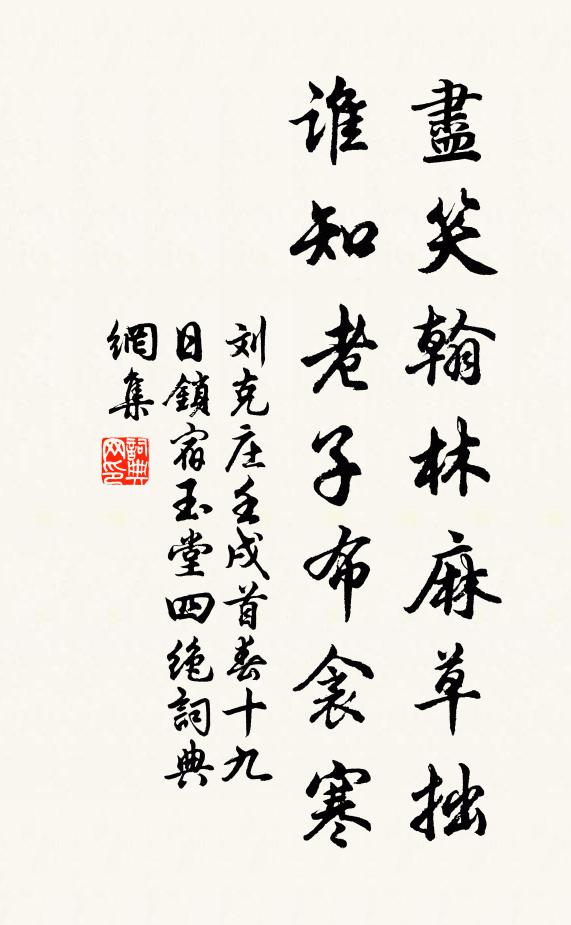 盡笑翰林麻草拙
誰知老子布衾寒
刘克庄壬戌首春十九
日鎖宿玉堂四绝詞典
網集
詞典
网印